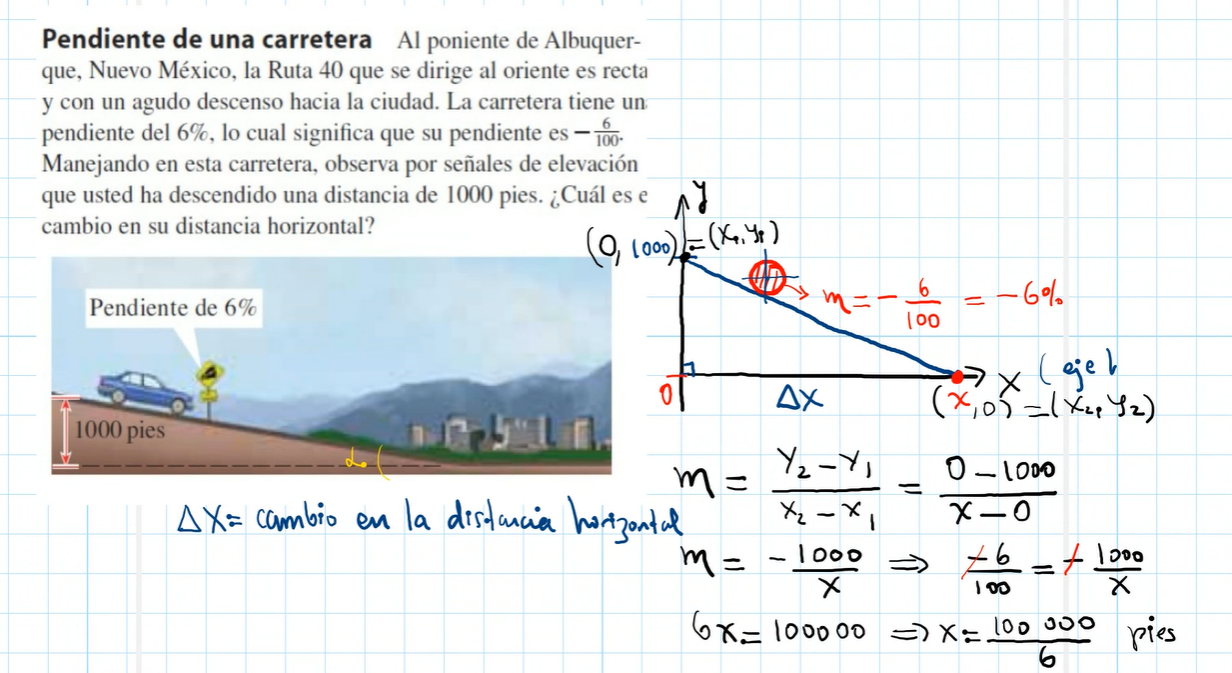 Pendiente de una carretera Al poniente de Albuquer-
que, Nuevo México, la Ruta 40 que se dirige al oriente es recta
y con un agudo descenso hacia la ciudad. La carretera tiene un
pendiente del 6%, lo cual significa que su pendiente es −6/100.
Manejando en esta carretera, observa por señales de elevación
que usted ha descendido una distancia de 1000 pies. ¿Cuál es e
cambio en su distancia horizontal?
Pendiente de 6%
1000 pies
α
ΔX = cambio en la distancia horizontal
y
(0, 1000) = (X₁, Y₁)
m = − 6/100 = −6%
0
ΔX
X (eje
(x, 0) = (X₂, Y₂)
m = (Y₂ − Y₁)/(X₂ − X₁) = (0 − 1000)/(X − 0)
m = − 1000/X ⇒ −6/100 = − 1000/X
6X = 100000 ⇒ X = 100 000/6 pies